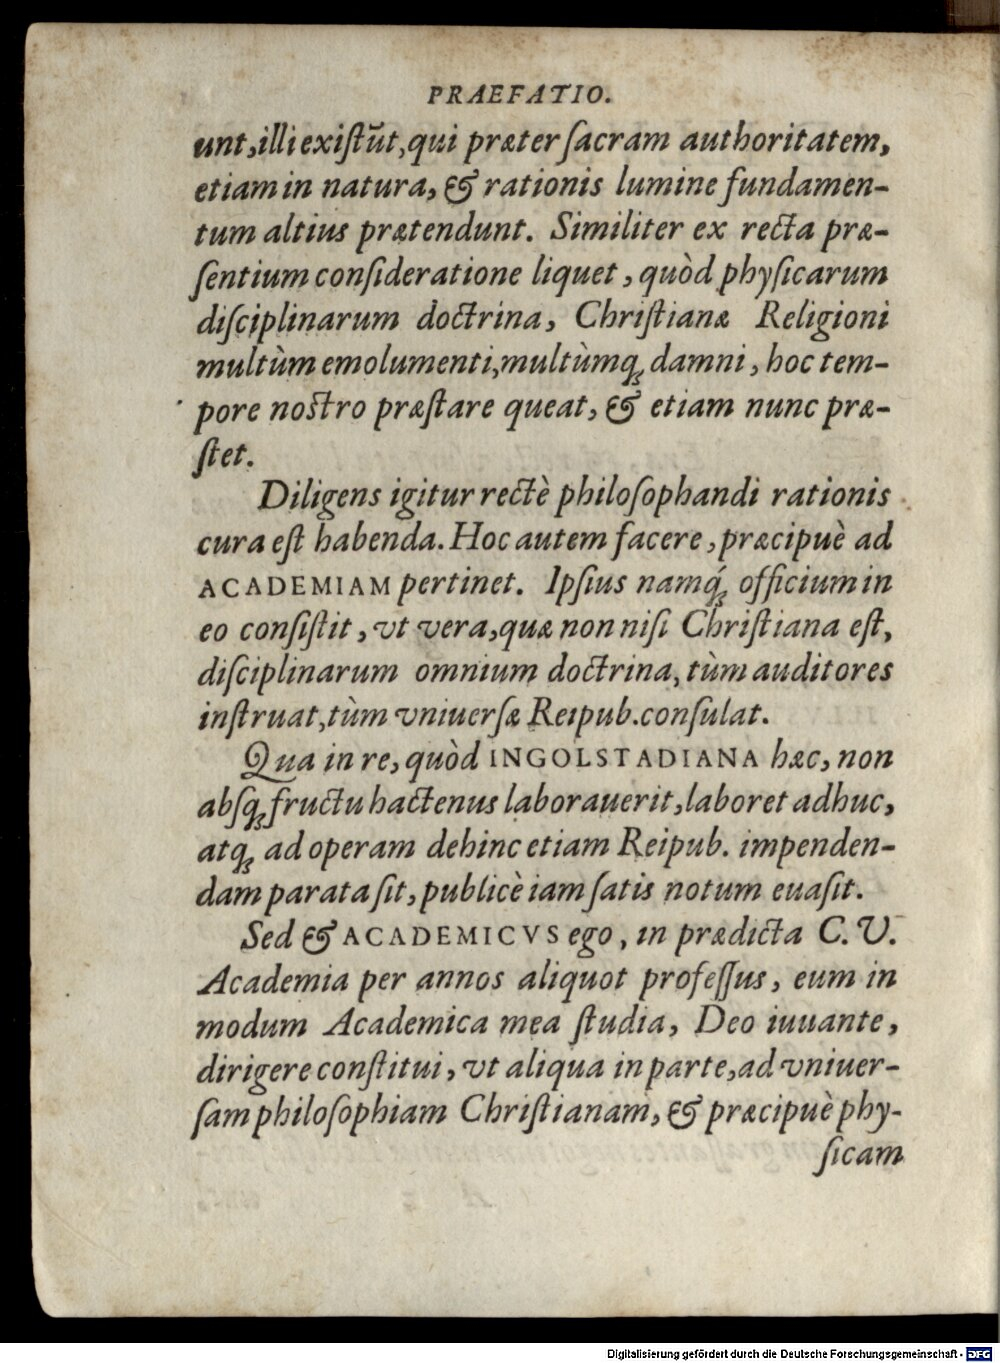 PRAEFATIO.
unt,illi exiſtūt,qui præter ſacram authoritatem,
etiam in natura, & rationis lumine fundamen-
tum altius prætendunt. Similiter ex recta præ-
ſentium conſideratione liquet, quòd phyſicarum
diſciplinarum doctrina, Chriſtianæ Religioni
multùm emolumenti,multùmq; damni, hoc tem-
pore noſtro præſtare queat, & etiam nunc præ-
ſtet.
Diligens igitur rectè philoſophandi rationis
cura eſt habenda. Hoc autem facere, præcipuè ad
ACADEMIAM pertinet. Ipſius namq́; officium in
eo conſiſtit, vt vera,quæ non niſi Chriſtiana eſt,
diſciplinarum omnium doctrina, tùm auditores
inſtruat,tùm vniuerſæ Reipub.conſulat.
Qua in re, quòd INGOLSTADIANA hæc, non
abſq; fructu hactenus laborauerit,laboret adhuc,
atq; ad operam dehinc etiam Reipub. impenden-
dam parata ſit, publicè iam ſatis notum euaſit.
Sed & ACADEMICVS ego, in prædicta C. V.
Academia per annos aliquot profeſſus, eum in
modum Academica mea ſtudia, Deo iuuante,
dirigere conſtitui, vt aliqua in parte,ad vniuer-
ſam philoſophiam Chriſtianam, & præcipuè phy-
ſicam
Digitalisierung gefördert durch die Deutsche Forschungsgemeinschaft - DFG